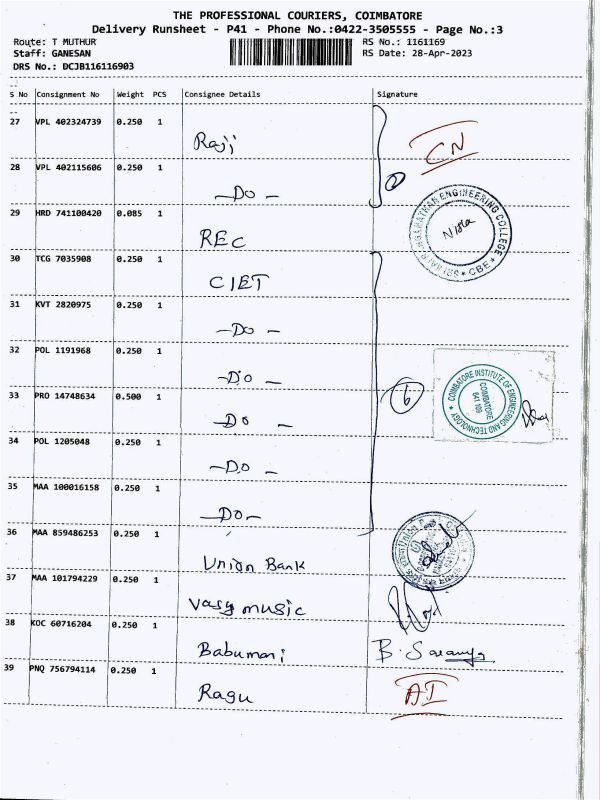 THE PROFESSIONAL COURIERS, COIMBATORE
Delivery Runsheet - P41 - Phone No.:0422-3505555 - Page No.:3
Route: T MUTHUR RS No.: 1161169
Staff: GANESAN RS Date: 28-Apr-2023
DRS No.: DCJB116116903
S No Consignment No Weight PCS Consignee Details Signature
27 VPL 402324739 0.250 1 Raji CN
28 VPL 402115606 0.250 1 -Do- 2
29 HRD 741100420 0.085 1 REC
SRI RANGANATHAR ENGINEERING COLLEGE * CBE *
30 TCG 7035908 0.250 1 CIET
31 KVT 2820975 0.250 1 -Do-
32 POL 1191968 0.250 1 -Do-
33 PRO 14748634 0.500 1 -Do- 6
COIMBATORE INSTITUTE OF ENGINEERING AND TECHNOLOGY *
COIMBATORE
641 109
34 POL 1205048 0.250 1 -Do-
35 MAA 100016158 0.250 1 -Do-
36 MAA 859486253 0.250 1 Union Bank
37 MAA 101794229 0.250 1 Vasy music
38 KOC 60716204 0.250 1 Babumani B. Saranya
39 PNQ 756794114 0.250 1 Ragu AI